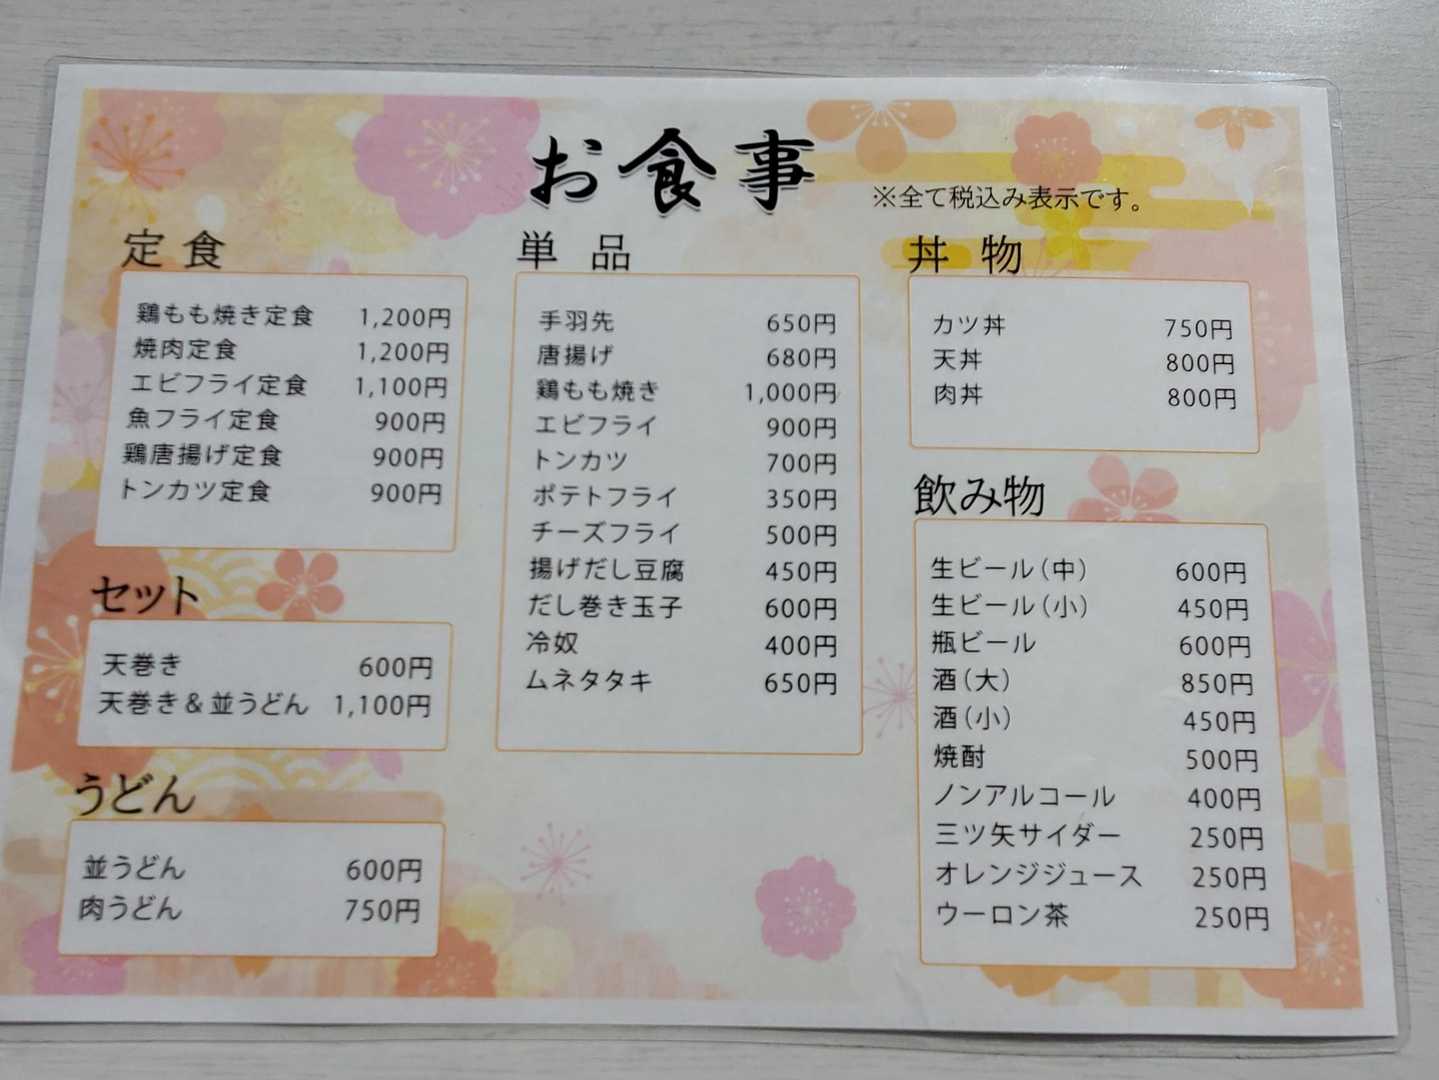 お食事
※全て税込み表示です。
定食
鶏もも焼き定食 1,200円
焼肉定食 1,200円
エビフライ定食 1,100円
魚フライ定食 900円
鶏唐揚げ定食 900円
トンカツ定食 900円
セット
天巻き 600円
天巻き&並うどん 1,100円
うどん
並うどん 600円
肉うどん 750円
単品
手羽先 650円
唐揚げ 680円
鶏もも焼き 1,000円
エビフライ 900円
トンカツ 700円
ポテトフライ 350円
チーズフライ 500円
揚げだし豆腐 450円
だし巻き玉子 600円
冷奴 400円
ムネタタキ 650円
丼物
カツ丼 750円
天丼 800円
肉丼 800円
飲み物
生ビール(中) 600円
生ビール(小) 450円
瓶ビール 600円
酒(大) 850円
酒(小) 450円
焼酎 500円
ノンアルコール 400円
三ツ矢サイダー 250円
オレンジジュース 250円
ウーロン茶 250円